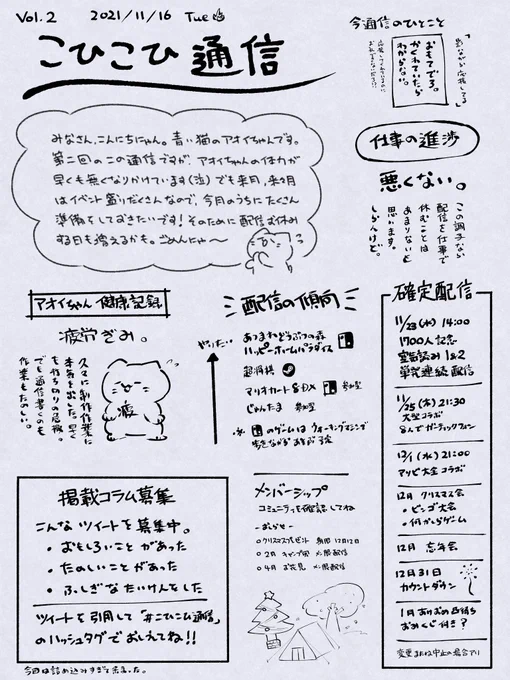 Vol.2 2021/11/16 Tue
こひこひ通信
今通信のひとこと
おもてでろ。
かくれていたら
わからない。
みなさん、こんにちにゃん。青い猫のアオイちゃんです。
第二回のこの通信ですが、アオイちゃんの体力が
早くも無くなりかけています(泣) でも来月、来々月
はイベント盛りだくさんなので、今月のうちにたくさん
準備をしておきたいです！そのために配信お休み
する日も増えるかも。ごめんにゃ〜
仕事の進捗
悪くない。
この調子なら
配信を仕事で
休むことは
あまりないと
思います。
しらんけど。
アオイちゃん健康記録
疲労ぎみ。
久々に制作作業に
本気を出した。早く
も打ち切りの危機。
でも通信書くのも
作業もたのしい。
疲
配信の傾向
やりたい
あつまれどうぶつの森
ハッピーホームパラダイス
超将棋
マリオカート8DX 参加型
じゃんたま 参加型
のゲームはウォーキングマシンで
歩きながらあそぶ予定
確定配信
11/23(火) 14:00
1700人記念
童話読み 1&2
単発連続配信
11/25(木) 21:30
大型コラボ
8人でガーティックフォン
12/1(水) 21:00
マリパ大会コラボ
12月 クリスマス会
・ビンゴ大会
・何かしらゲーム
12月 忘年会
12月31日
カウントダウン
1月 ありおの日待ち
おみくじ付き？
変更または中止の場合アリ
掲載コラム募集
こんなツイートを募集中。
・おもしろいことがあった
・たのしいことがあった
・ふしぎなたいけんをした
ツイートを引用して「#こひこひ通信」
のハッシュタグでおしえてね！！
メンバーシップ
コミュニティを確認してね
-おしらせ-
○クリスマスプレゼント 期限12月12日
○2月 キャンプ回 メン限配信
○4月 お花見 メン限配信
今回は詰め込みすぎて余った。